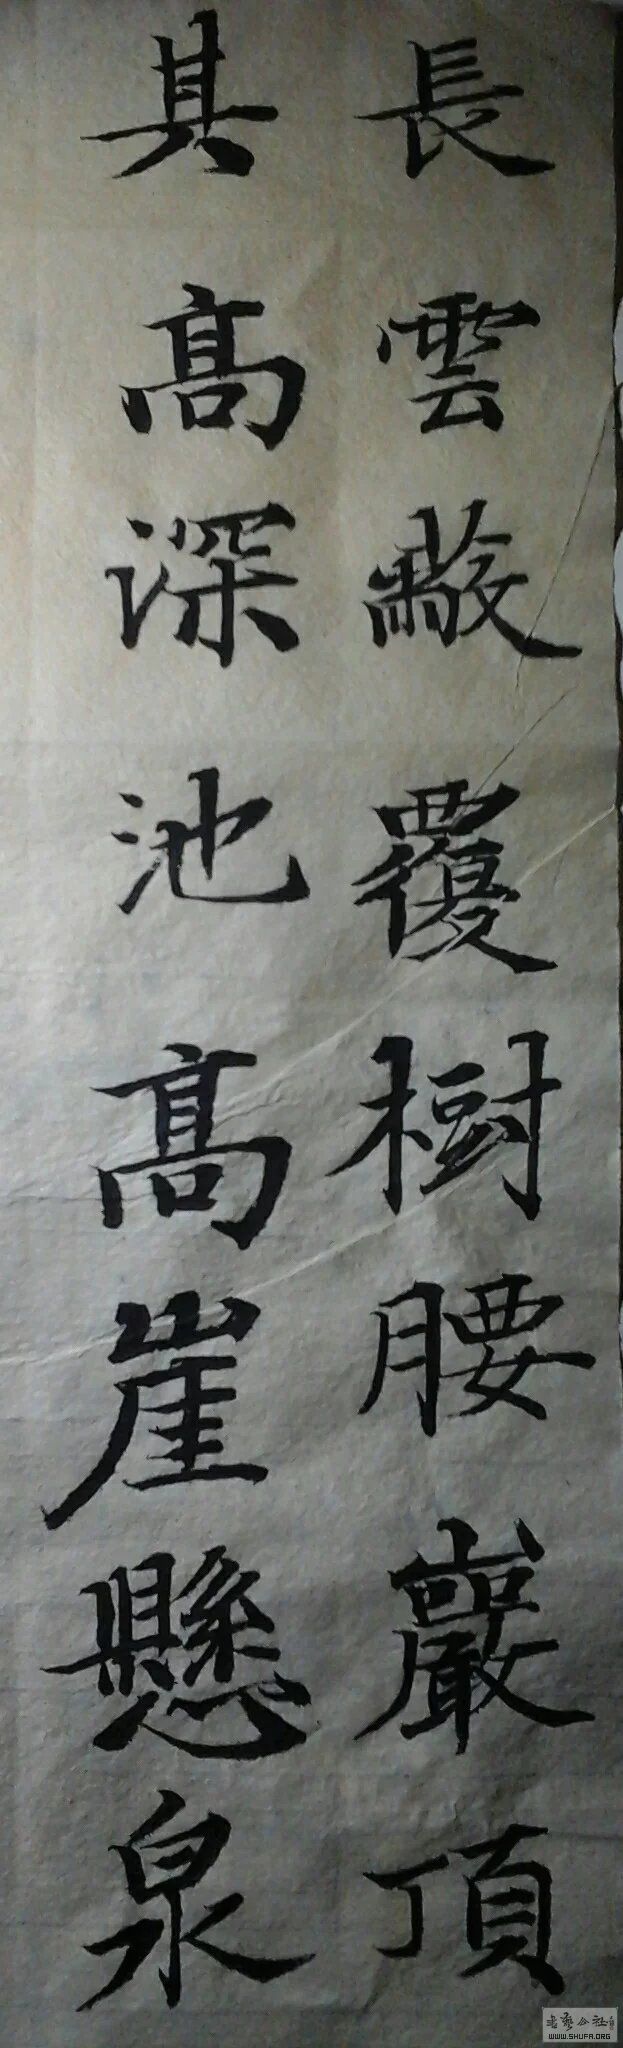 長雲蔽覆樹腰巖頂
其高深池高崖懸泉
WWW.SHUFA.ORG